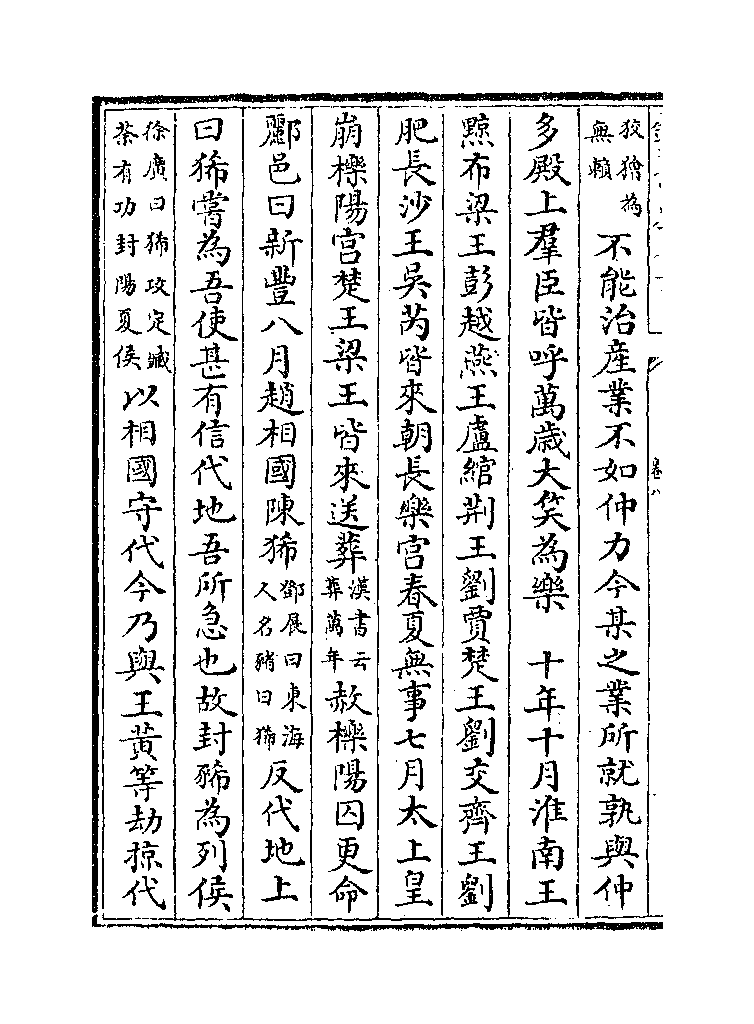 狡獪為無賴不能治產業不如仲力今某之業所就孰與仲
多殿上羣臣皆呼萬歲大笑為樂　十年十月淮南王
黥布梁王彭越燕王盧綰荆王劉賈楚王劉交齊王劉
肥長沙王吳芮皆來朝長樂宮春夏無事七月太上皇
崩櫟陽宮楚王梁王皆來送葬漢書云葬萬年赦櫟陽囚更命
酈邑曰新豐八月趙相國陳豨鄧展曰東海人名豬曰豨反代地上
曰豨嘗為吾使甚有信代地吾所急也故封豨為列侯
徐廣曰豨攻定臧荼有功封陽夏侯以相國守代今乃與王黃等劫掠代
卷八